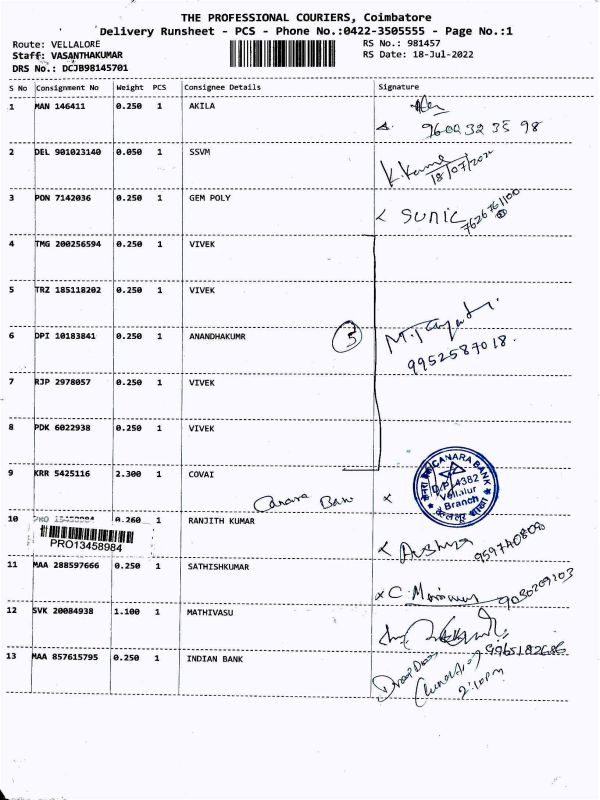 THE PROFESSIONAL COURIERS, Coimbatore
Delivery Runsheet - PCS - Phone No.:0422-3505555 - Page No.:1
Route: VELLALORE
RS No.: 981457
Staff: VASANTHAKUMAR
RS Date: 18-Jul-2022
DRS No.: DCJB98145701
S No Consignment No Weight PCS Consignee Details Signature
1 MAN 146411 0.250 1 AKILA
2 DEL 901023140 0.050 1 SSVM
18/07/2022
3 PON 7142036 0.250 1 GEM POLY
SUNIC 7626761100
4 TMG 200256594 0.250 1 VIVEK
5 TRZ 185118202 0.250 1 VIVEK
6 DPI 10183841 0.250 1 ANANDHAKUMR
5
9952587018.
7 RJP 2978057 0.250 1 VIVEK
8 PDK 6022938 0.250 1 VIVEK
9 KRR 5425116 2.300 1 COVAI
CANARA BANK
D.P. 4382
Vellalur
Branch
10 PRO 13458984 0.260 1 RANJITH KUMAR
PRO13458984
11 MAA 288597666 0.250 1 SATHISHKUMAR
12 SVK 20084938 1.100 1 MATHIVASU
13 MAA 857615795 0.250 1 INDIAN BANK
2:10pm